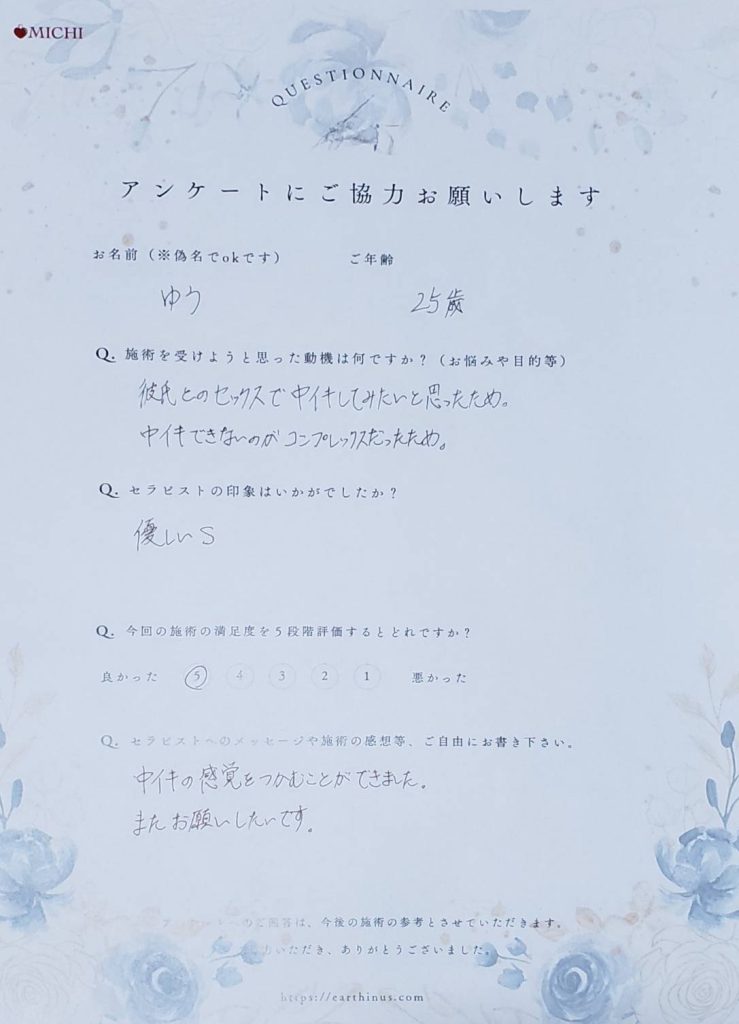 MICHI
QUESTIONNAIRE
アンケートにご協力お願いします
お名前（※偽名でokです） ご年齢
ゆう 25歳
Q. 施術を受けようと思った動機は何ですか？（お悩みや目的等）
彼氏とのセックスで中イキしてみたいと思ったため。
中イキできないのがコンプレックスだったため。
Q. セラピストの印象はいかがでしたか？
優しいS
Q. 今回の施術の満足度を５段階評価するとどれですか？
良かった 5 4 3 2 1 悪かった
Q. セラピストへのメッセージや施術の感想等、ご自由にお書き下さい。
中イキの感覚をつかむことができました。
またお願いしたいです。
アンケートへのご回答は、今後の施術の参考とさせていただきます。
いただき、ありがとうございました。
https://earthinus.com